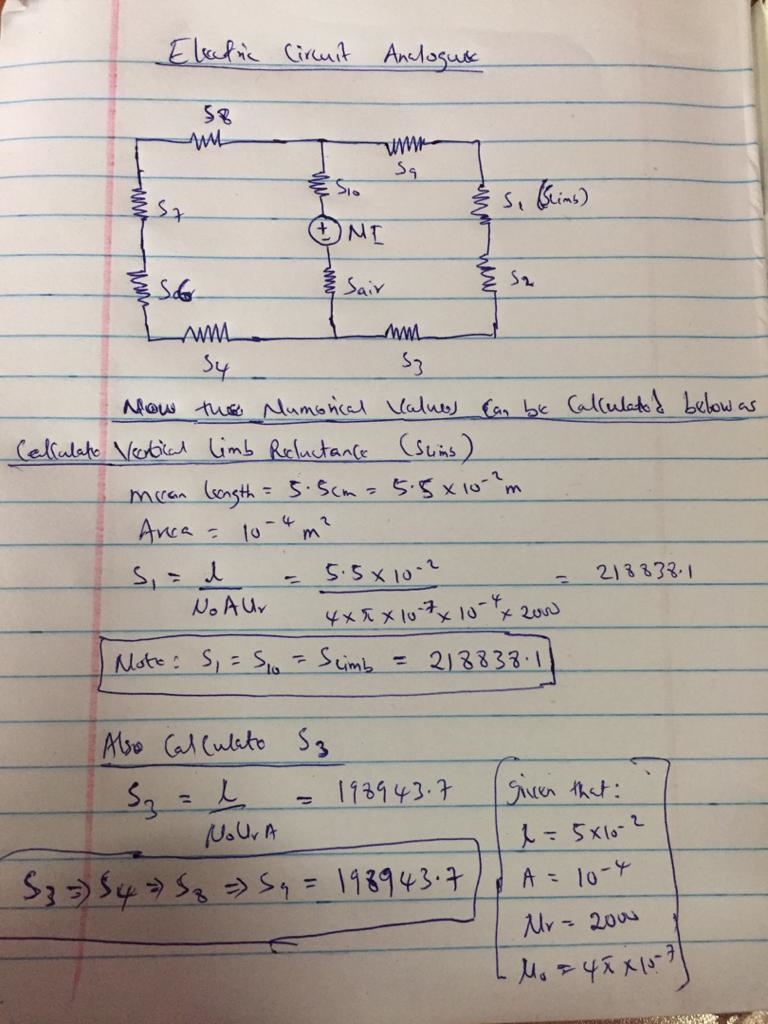 Electric Circuit Analogue
S8
S9
S10
S7
S1 (Slimb)
NI
S6
Sair
S2
S4
S3
Now these Numerical Values can be Calculated below as
Calculate Vertical limb Reluctance (Slimb)
mean length = 5.5cm = 5.5 x 10⁻² m
Area = 10⁻⁴ m²
S₁ = l / μ₀ A μr = 5.5 x 10⁻² / 4 x π x 10⁻⁷ x 10⁻⁴ x 2000 = 218838.1
Note: S₁ = S₁₀ = Slimb = 218838.1
Also Calculate S3
S₃ = l / μ₀ μr A = 198943.7
S₃ ⇒ S₄ ⇒ S₈ ⇒ S₉ = 198943.7
Given that:
l = 5x10⁻²
A = 10⁻⁴
μr = 2000
μ₀ = 4π x 10⁻⁷